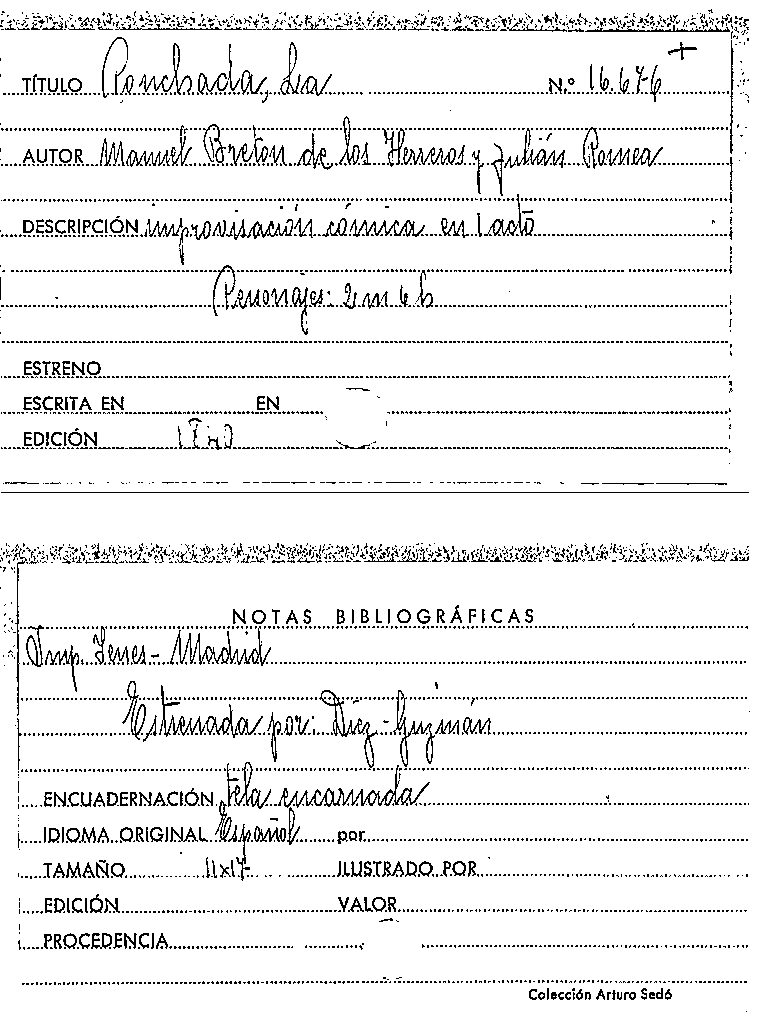 TÍTULO Ponchada, La N.º 16.676 +
AUTOR Manuel Breton de los Herreros y Julián Romea
DESCRIPCIÓN improvisación cómica en 1 acto
Personajes: 2 m 6 h
ESTRENO
ESCRITA EN EN
EDICIÓN 1840
NOTAS BIBLIOGRÁFICAS
Imp. Yenes - Madrid
Estrenada por: Diez - Guzmán
ENCUADERNACIÓN tela encarnada
IDIOMA ORIGINAL Español por
TAMAÑO 11x17 ILUSTRADO POR
EDICIÓN VALOR
PROCEDENCIA
Colección Arturo Sedó